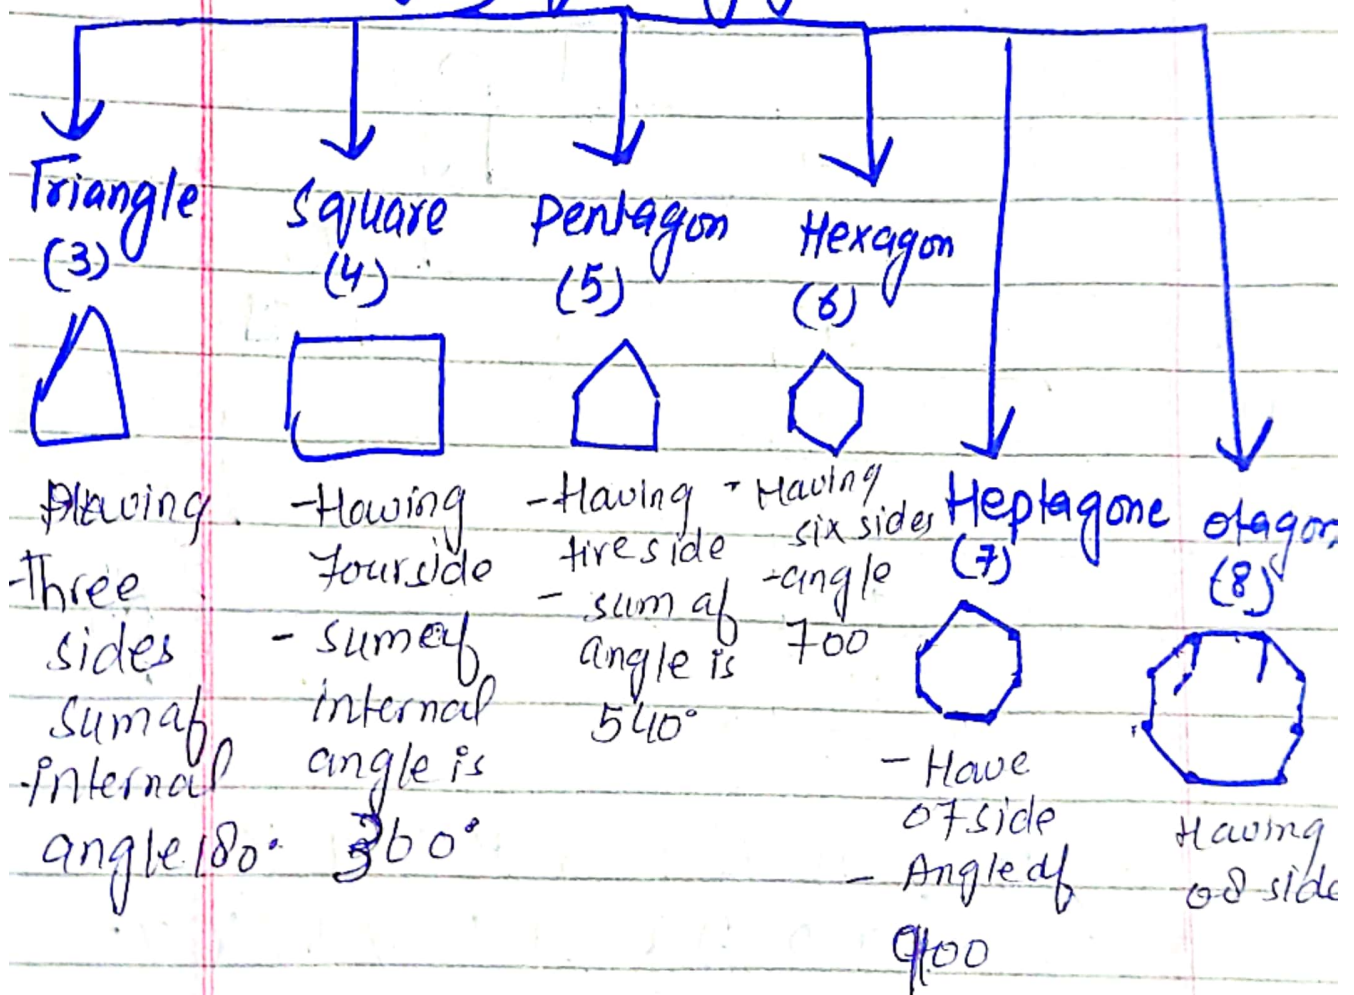 Triangle
(3)
Having
Three
sides
sum of
internal
angle 180°
Square
(4)
- Having
four side
- sum of
internal
angle is
360°
Pentagon
(5)
- Having
five side
- sum of
angle is
540°
Hexagon
(6)
- Having
six sides
- angle
700
Heptagone
(7)
- Have
07 side
- Angle of
900
otagon
(8)
Having
08 side